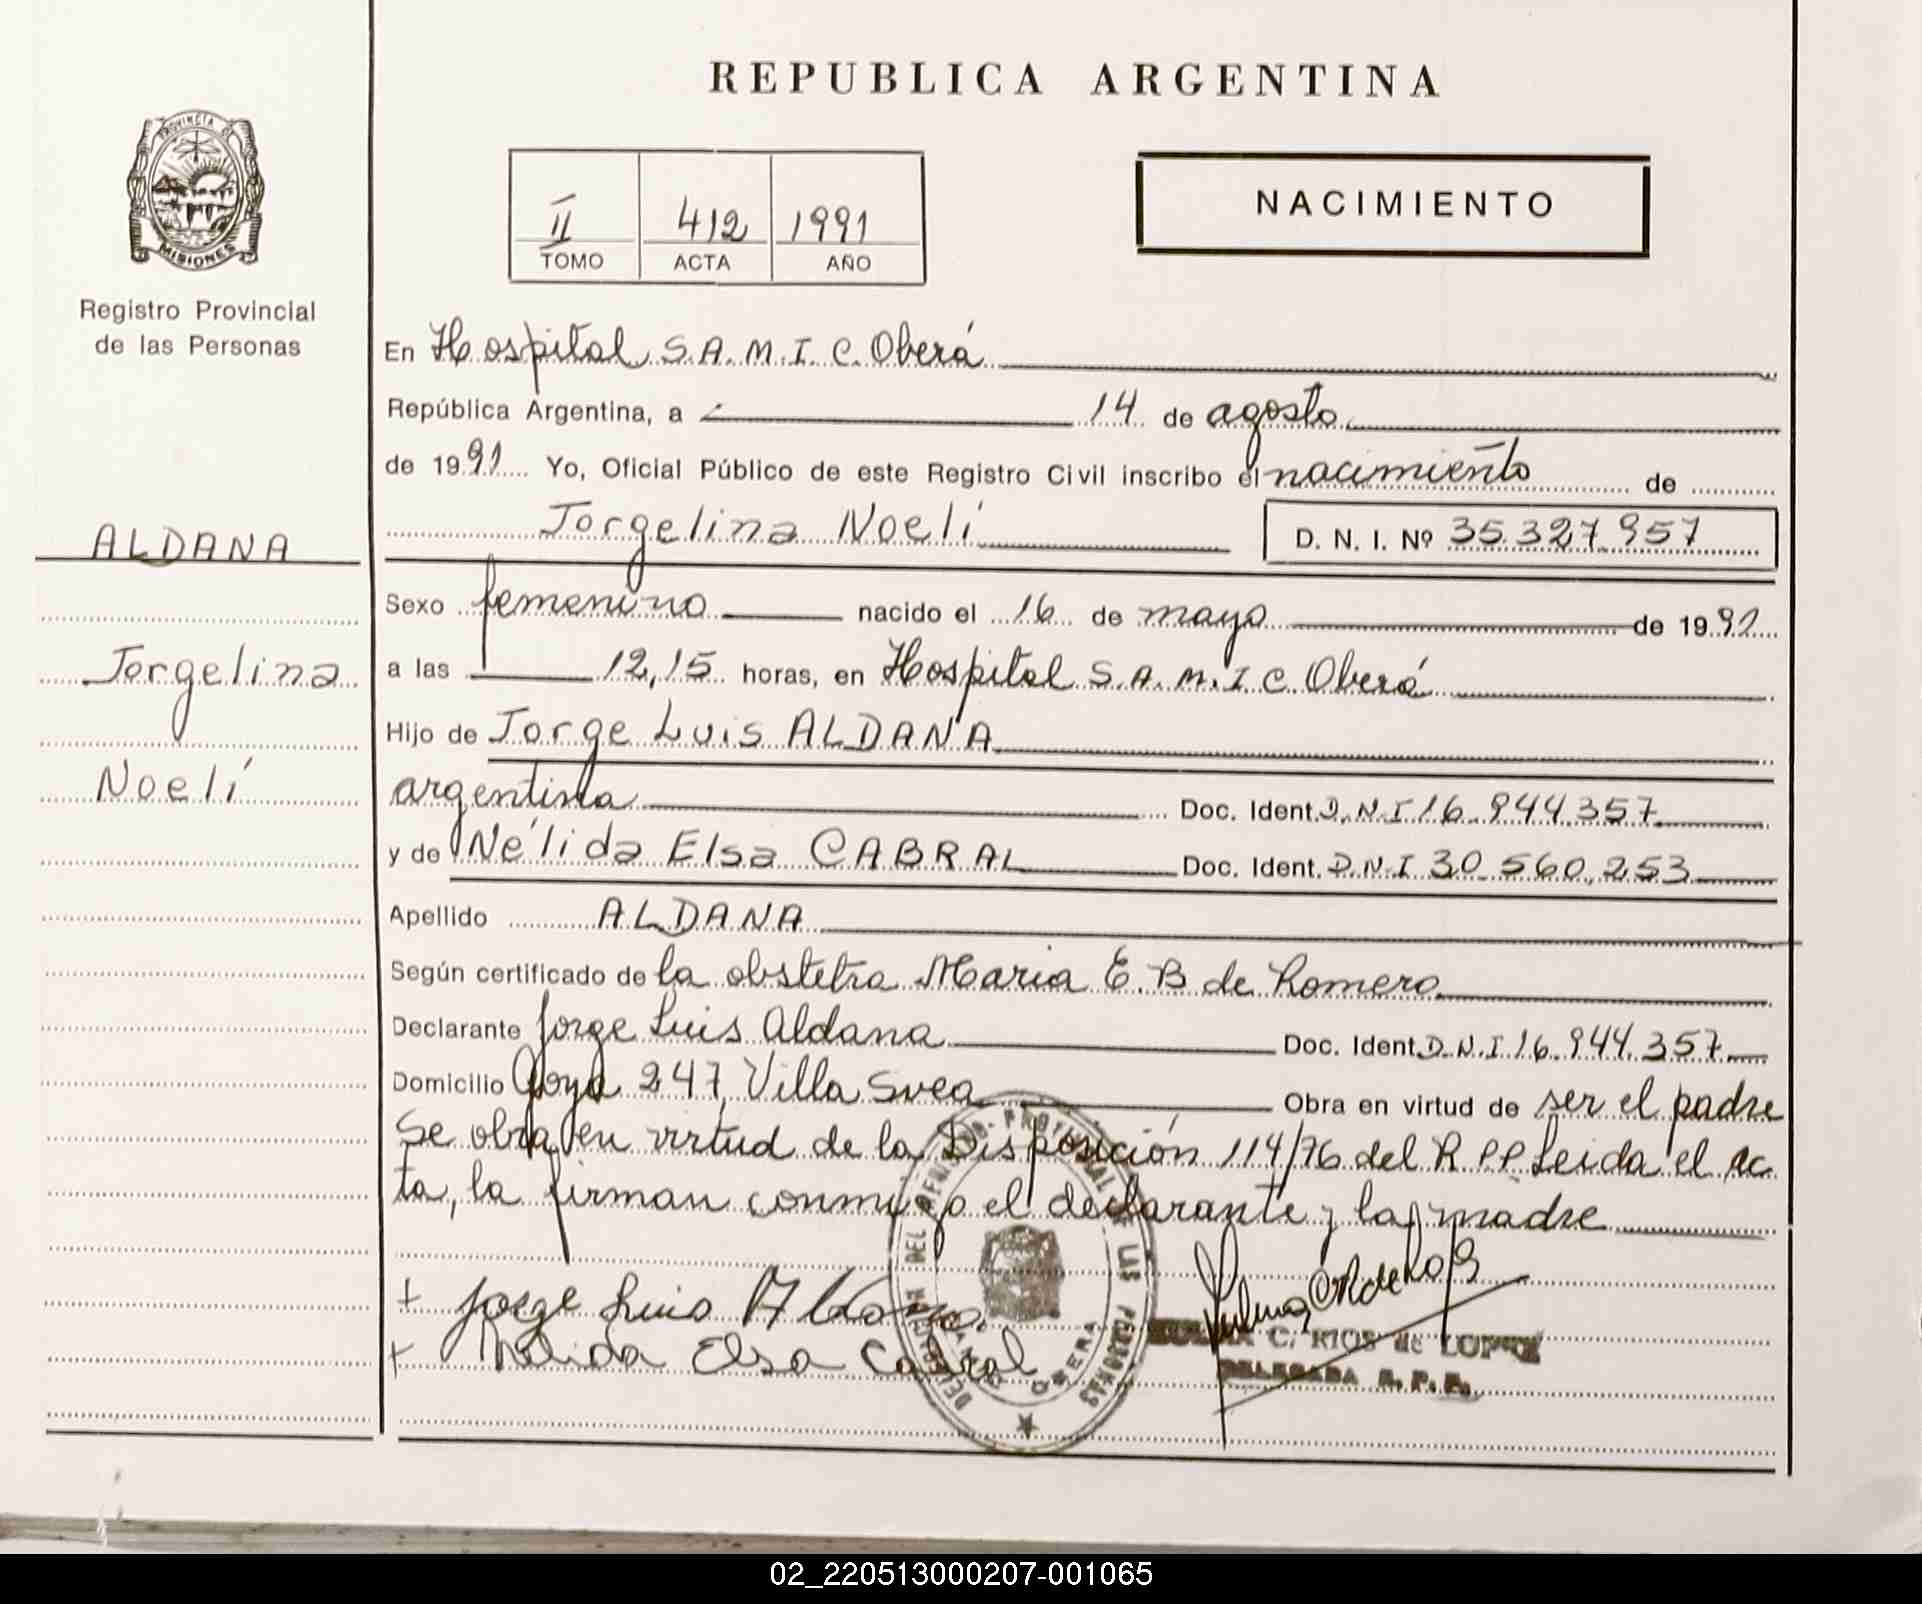 REPUBLICA ARGENTINA
PROVINCIA DE
MISIONES
Registro Provincial
de las Personas
II 412 1991
TOMO ACTA AÑO
NACIMIENTO
En Hospital S.A.M.I.C. Oberá
República Argentina, a 14 de agosto
de 1991 Yo, Oficial Público de este Registro Civil inscribo el nacimiento de
Jorgelina Noelí D. N. I. Nº 35.327.957
ALDANA
Jorgelina
Noelí
Sexo femenino nacido el 16 de mayo de 1991
a las 12,15 horas, en Hospital S.A.M.I.C. Oberá
Hijo de Jorge Luis ALDANA
argentina Doc. Ident. D.N.I 16.944.357
y de Nélida Elsa CABRAL Doc. Ident. D.N.I 30.560.253
Apellido ALDANA
Según certificado de la obstetra Maria E. B de Romero
Declarante Jorge Luis Aldana Doc. Ident. D.N.I 16.944.357
Domicilio Goya 247, Villa Svea Obra en virtud de ser el padre
Se obra en virtud de la Disposición 114/76 del R.P.P. Leida el ac
ta, la firman conmigo el declarante y la madre
+ Jorge Luis Aldana
+ Nelida Elsa Cabral
C. RIOS de LOPEZ
DELEGADA R. P. P.
DEL REGISTRO PROVINCIAL DE LAS PERSONAS
OBERA
02_220513000207-001065